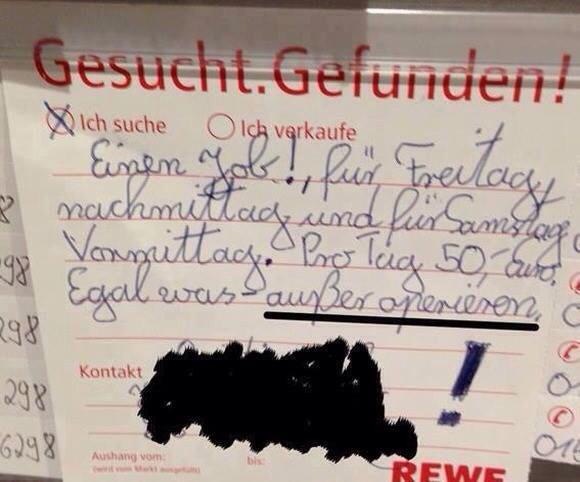 Gesucht.Gefunden!
Ich suche Ich verkaufe
Einen Job!, für Freitag,
nachmittag und für Samstag
Vormittag. Pro Tag 50,- Euro.
Egal was - außer operieren.
!
Kontakt
Aushang vom: bis:
(wird vom Markt ausgefüllt)
REWE
8
98
298
298
6298